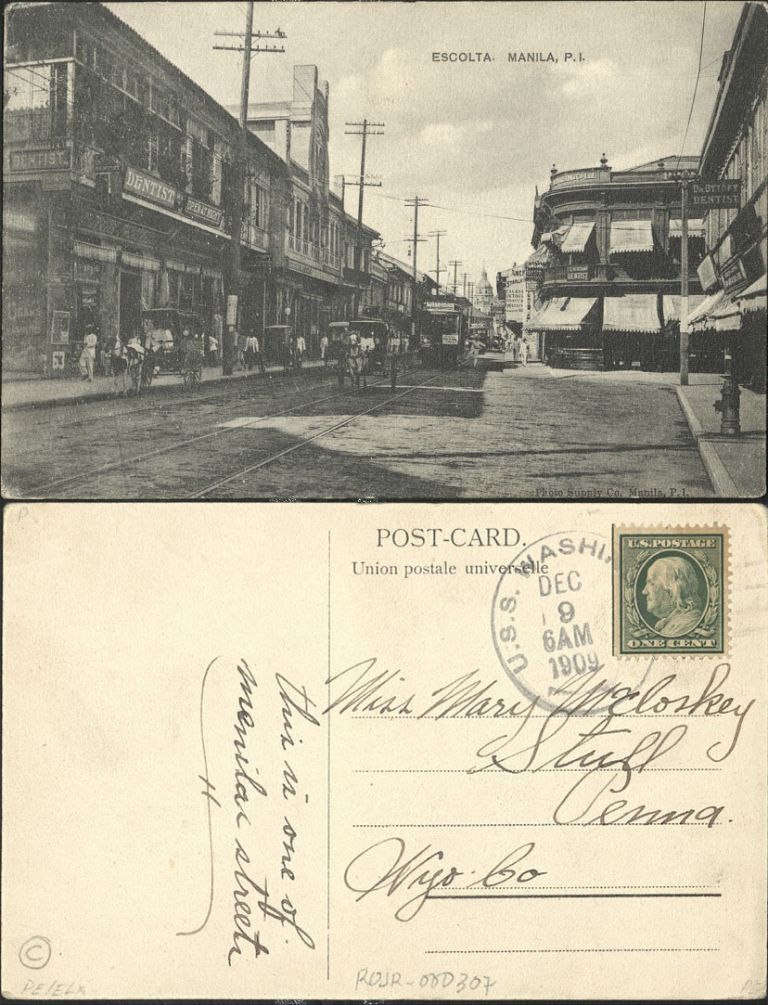 ESCOLTA. MANILA, P.I.
DENTIST
DENTIST
DR. OTTOFY
DENTIST
DENTIST
Photo Supply Co. Manila, P.I.
POST-CARD.
Union postale universelle
U.S.S. WASHI
DEC
9
6AM
1909
U.S. POSTAGE
ONE CENT
this is one of
manilas streets
H
Miss Mary McCloskey
Stull
Penna.
Wyo. Co
P
©
PE/ELX
ROJR-000307